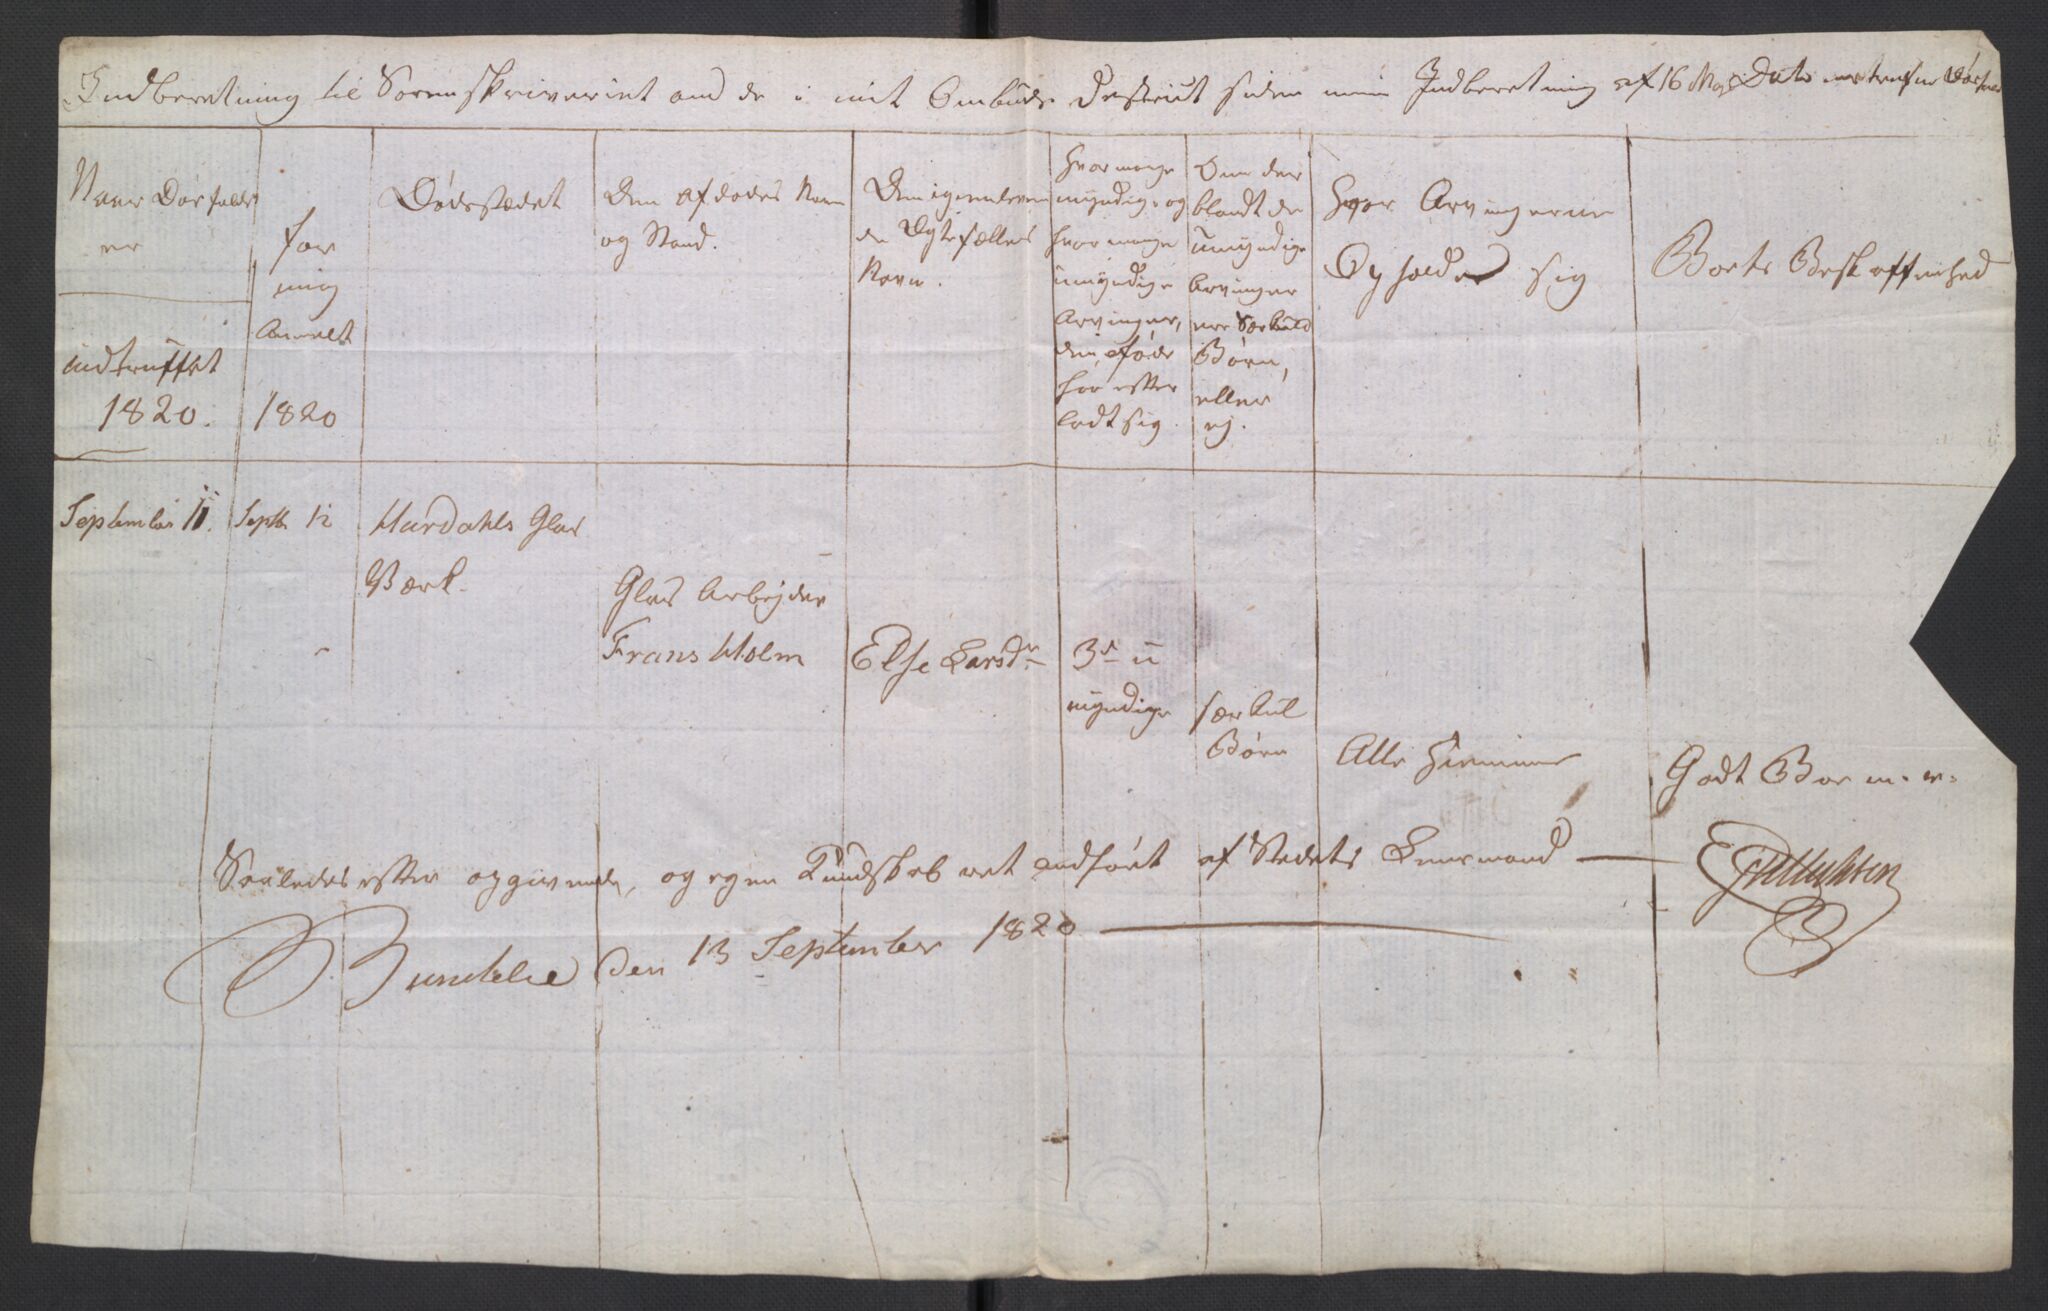 Indberetning til Sorenskriveriet om de i mit Ombuds District siden min Indberetning af 16 Maj Dato indtrufne Dødsfald
Naar Dødsfaldet
er
indtruffet
1820.
for
mig
Anmelt
1820
Dødsstædet
Den afdødes Navn
og Stand.
Den igjenleven
de Ægtefælles
Navn.
Hvor mange
myndige og
hvor mange
umyndige
Arvinger,
den afdøde
har efter
ladt sig.
Om der
blandt de
umyndige
Arvinger
ere Særkuld
Børn,
eller
ej.
Hvor Arvingerne
Opholder sig
Boets Beskaffenhed
September 11.
Septb 12
Hurdahls Glas
Værk.
Glas Arbejder
Frans Holm
Else Larsdr
3de u
myndige
særkul
Børn
Alle hiemme
Godt Boe m. v.
Saaledes efter opgivende, og egen Kundskab ret anført af Stedets Lensmand
den 13 September 1820